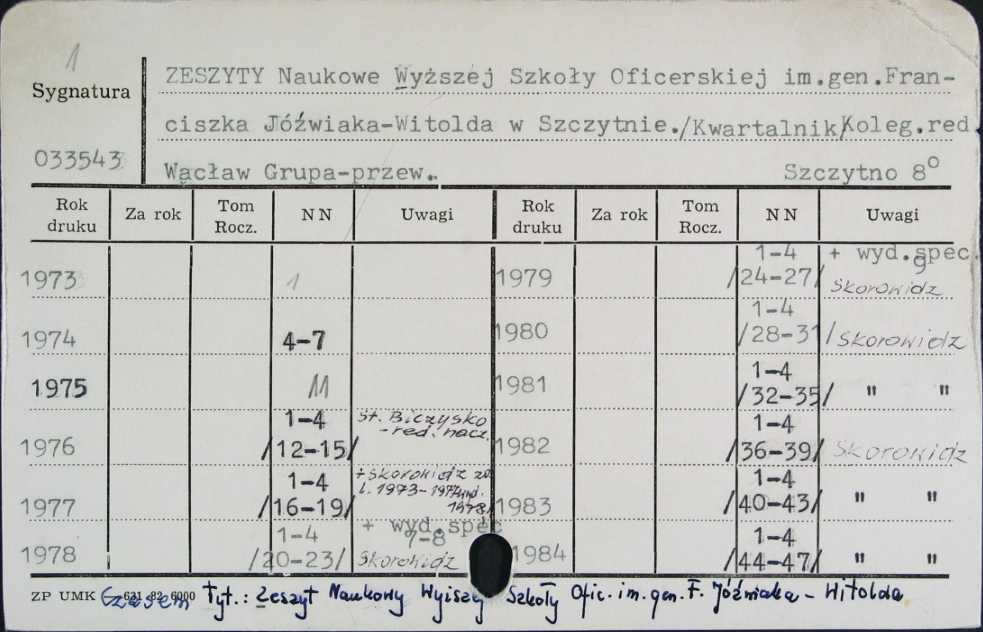 1
Sygnatura
ZESZYTY Naukowe Wyższej Szkoły Oficerskiej im.gen.Fran-
ciszka Jóźwiaka-Witolda w Szczytnie./Kwartalnik/Koleg.red.
033543 Wacław Grupa-przew. Szczytno 8°
Rok druku Za rok Tom Rocz. NN Uwagi Rok druku Za rok Tom Rocz. NN Uwagi
1973 1 1979 1-4 /24-27/ + wyd.spec. 9 Skorowidz
1974 4-7 1980 1-4 /28-31/ Skorowidz
1975 11 1981 1-4 /32-35/ " "
1976 1-4 /12-15/ St. Biczysko -red. nacz. 1982 1-4 /36-39/ Skorowidz
1977 1-4 /16-19/ +skorowidz za l. 1973-1977 wyd. 1978/ 1983 1-4 /40-43/ " "
1978 1-4 /20-23/ + wyd.spec 7-8 Skorowidz 1984 1-4 /44-47/ " "
ZP UMK 631 82 6000 Czasem Tyt.: Zeszyt Naukowy Wyższej Szkoły Ofic. im. gen. F. Jóźwiaka - Witolda